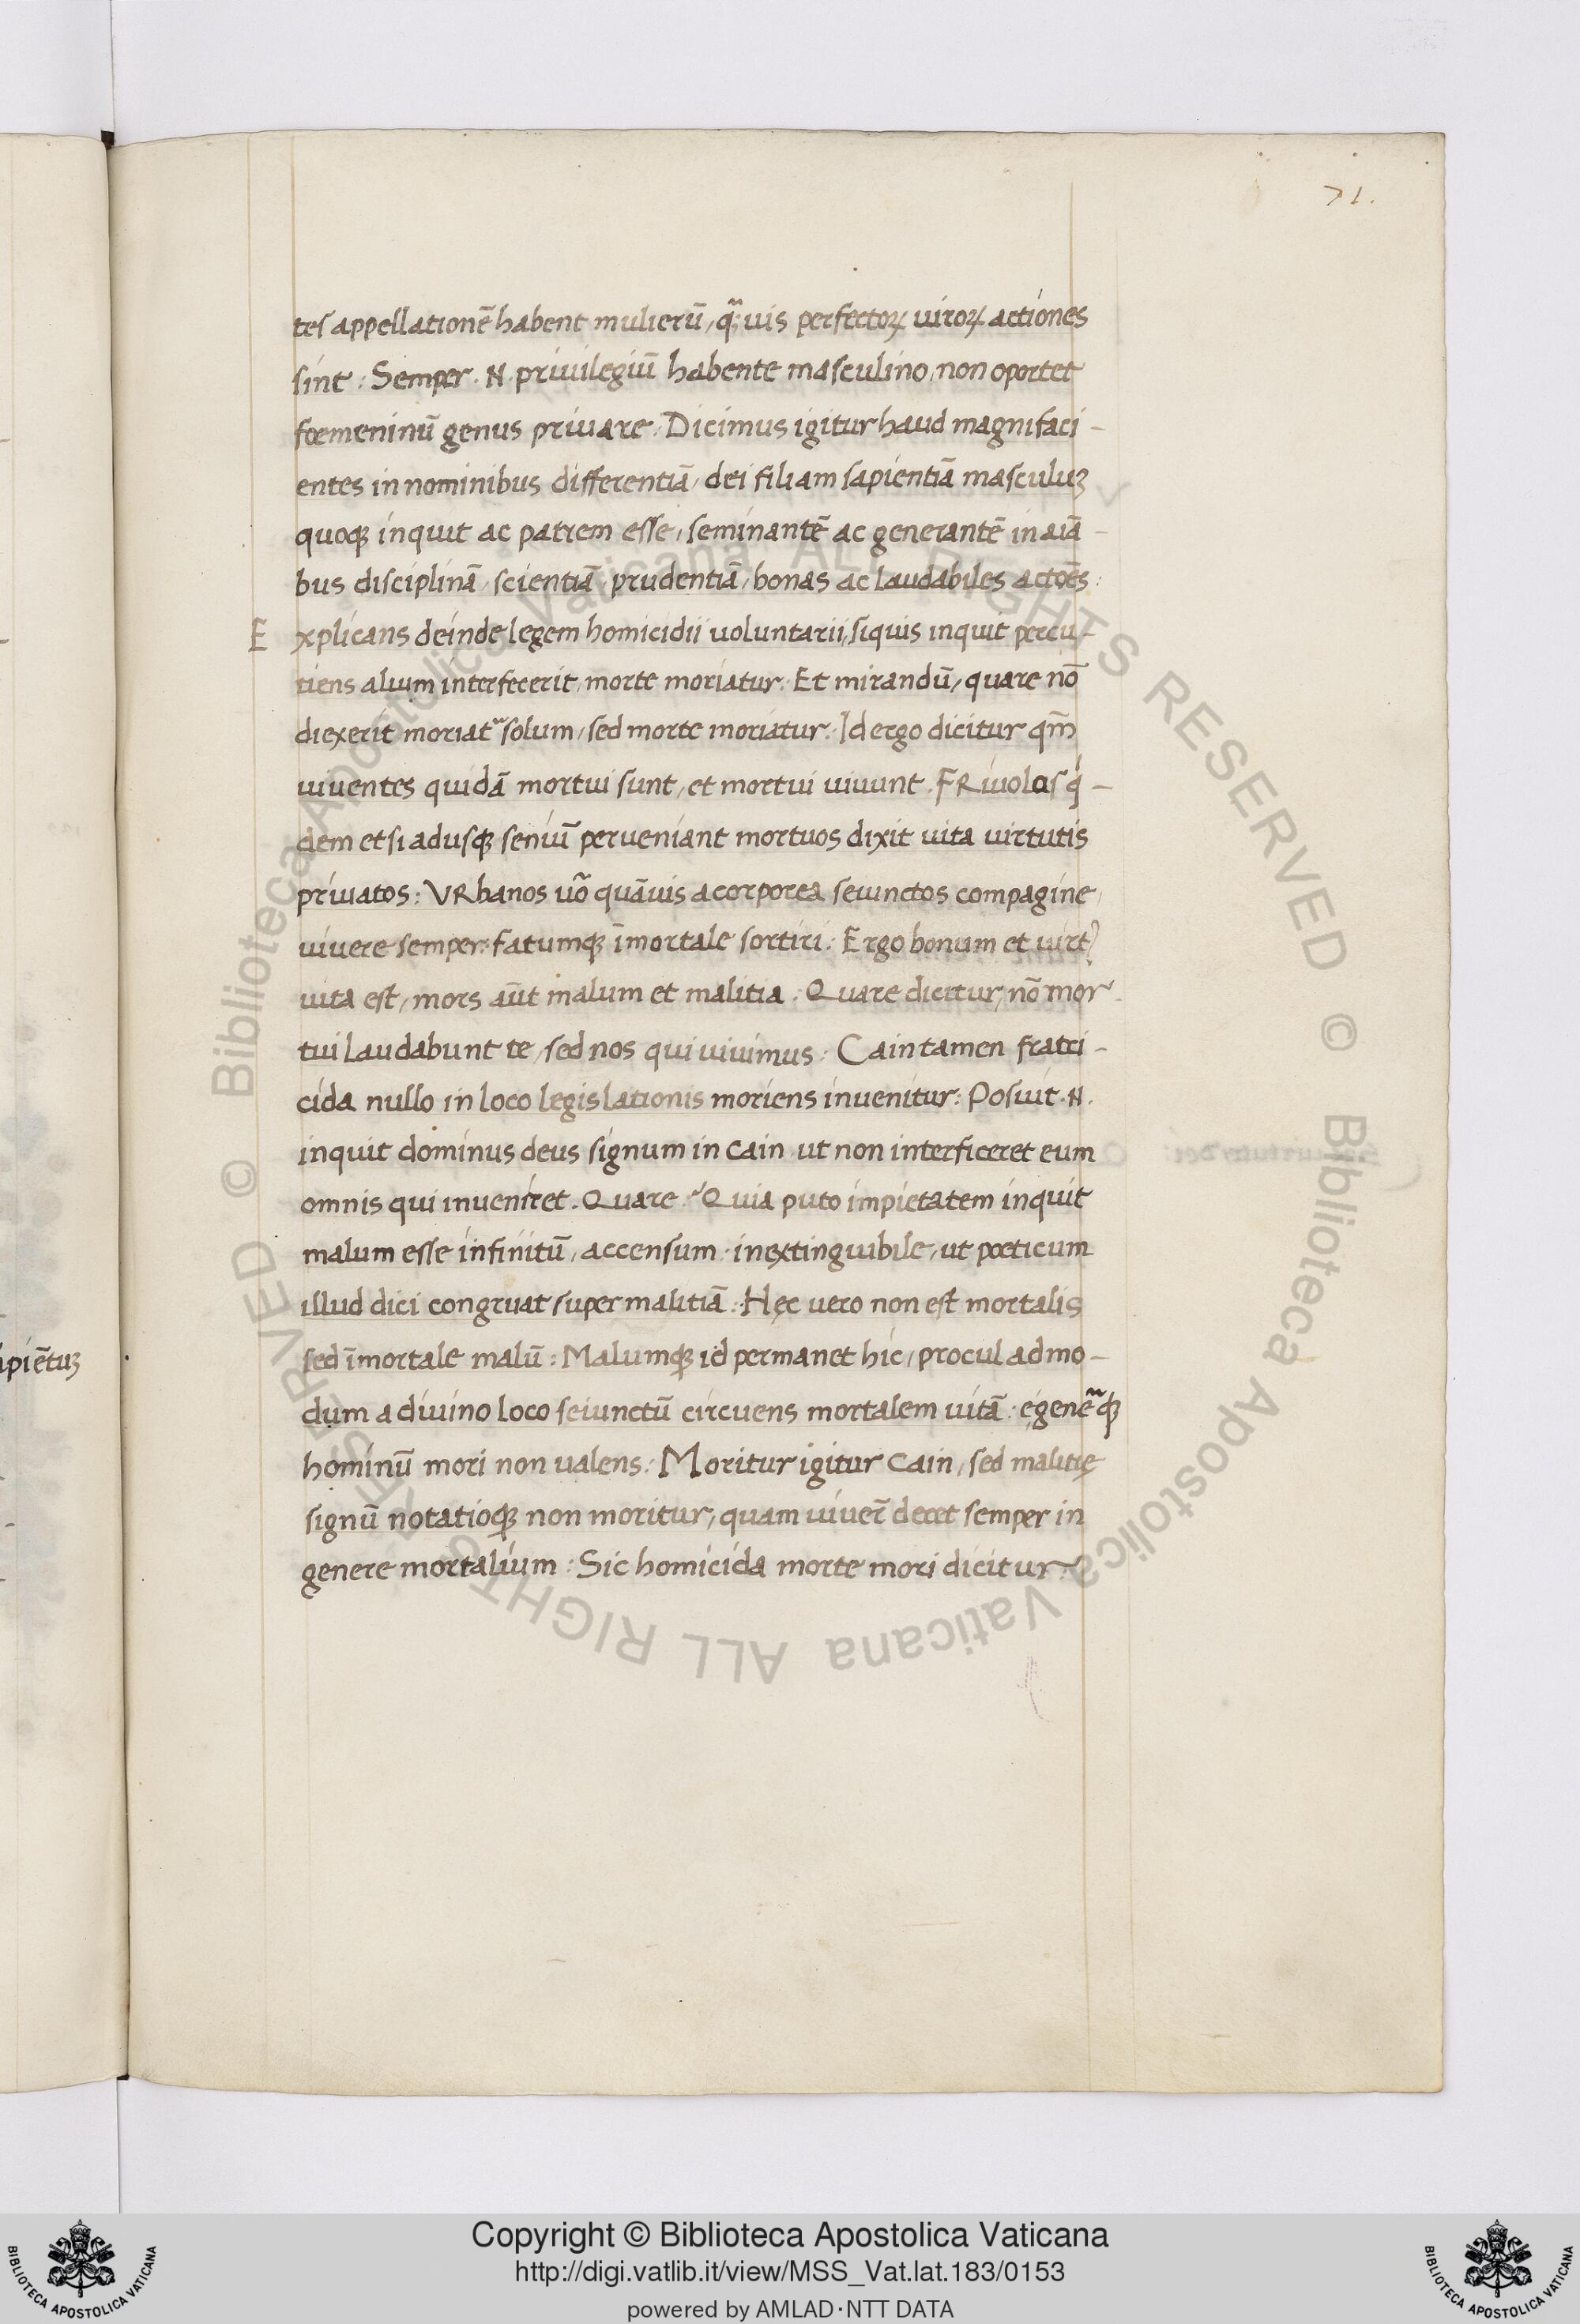 71.
tes appellationē habent mulierū, q̃uis perfectoꝝ uiroꝝ actiones
sint: Semper .N. priuilegiū habente masculino, non oportet
foemeninū genus priuare. Dicimus igitur haud magnifaci-
entes in nominibus differentiā, dei filiam sapientiā masculuꝫ
quoqꝫ inquit ac patrem esse, seminantē ac generantē in aiā-
bus disciplinā, scientiā, prudentiā, bonas ac laudabiles actōēs:
Explicans deinde legem homicidii uoluntarii, siquis inquit percu-
tiens alium interfecerit, morte moriatur. Et mirandū, quare nō
diexerit moriat~ solum, sed morte moriatur. Id ergo dicitur qm̄
uiuentes quidā mortui sunt, et mortui uiuunt. FRiuolos q́-
dem etsi adusqꝫ seniū perueniant mortuos dixit uita uirtutis
priuatos: VRbanos uō quāuis a corporea seiunctos compagine,
uiuere semper: fatumqꝫ īmortale sortiri: Ergo bonum et uirt᾽
uita est, mors aūt malum et malitia: Quare dicitur, nō mor-
tui laudabunt te, sed nos qui uiuimus: Cain tamen fratri-
cida nullo in loco legislationis moriens inuenitur: Posuit .N.
inquit dominus deus signum in Cain ut non interficeret eum
omnis qui inueniret. Quare? Quia puto impietatem inquit
malum esse infinitū, accensum. inextinguibile, ut poeticum
illud dici congruat super malitiā: Hęc uero non est mortalis
sed īmortale malū: Malumqꝫ id permanet hic, procul admo-
dum a diuino loco seiunctū circuens mortalem uitā: egene~qꝫ
hominū mori non ualens: Moritur igitur Cain, sed malitię
signū notatioqꝫ non moritur, quam uiuer̄ decet semper in
genere mortalium: Sic homicida morte mori dicitur.
ipiētuꝫ
Copyright © Biblioteca Apostolica Vaticana
http://digi.vatlib.it/view/MSS_Vat.lat.183/0153
powered by AMLAD·NTT DATA
BIBLIOTECA APOSTOLICA VATICANA
BIBLIOTECA APOSTOLICA VATICANA
© Biblioteca Apostolica Vaticana ALL RIGHTS RESERVED
© Biblioteca Apostolica Vaticana ALL RIGHTS RESERVED